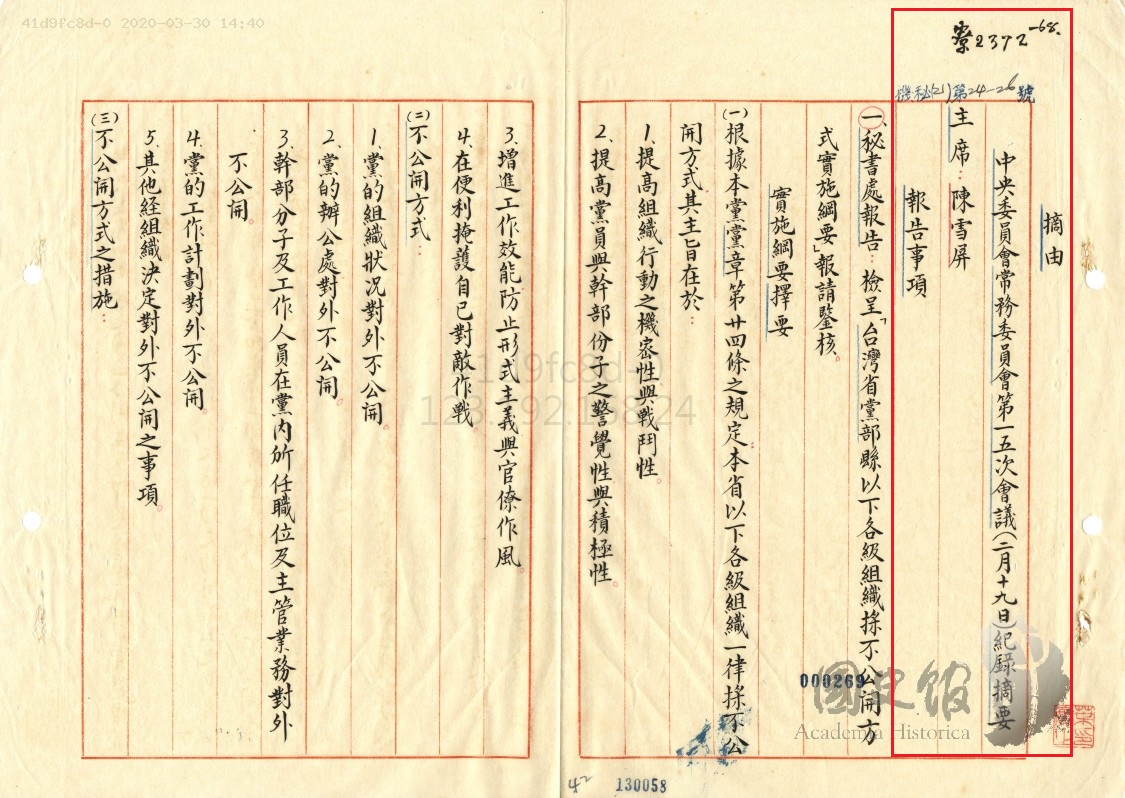 41d9fc8d-0 2020-03-30 14:40
寮2372-68.
機秘(21)第24-26號
摘由
中央委員會常務委員會第一五次會議(二月十九日)紀錄摘要
主席：陳雪屏
報告事項
一、秘書處報告：檢呈「台灣省黨部縣以下各級組織採不公開方
式實施綱要」報請鑒核。
實施綱要擇要
(一)根據本黨黨章第廿四條之規定本省以下各級組織一律採不公
開方式其主旨在於：
1.提高組織行動之機密性與戰鬥性。
2.提高黨員與幹部份子之警覺性與積極性。
3.增進工作效能防止形式主義與官僚作風
4.在便利掩護自己對敵作戰。
(二)不公開方式：
1.黨的組織狀况對外不公開。
2.黨的辦公處對外不公開。
3.幹部分子及工作人員在黨內所任職位及主管業務對外
不公開。
4.黨的工作計劃對外不公開。
5.其他経組織決定對外不公開之事項。
(三)不公開方式之措施：
41d9fc8d-0
123.192.168.24
000269
國史館
Academia Historica
42
130058